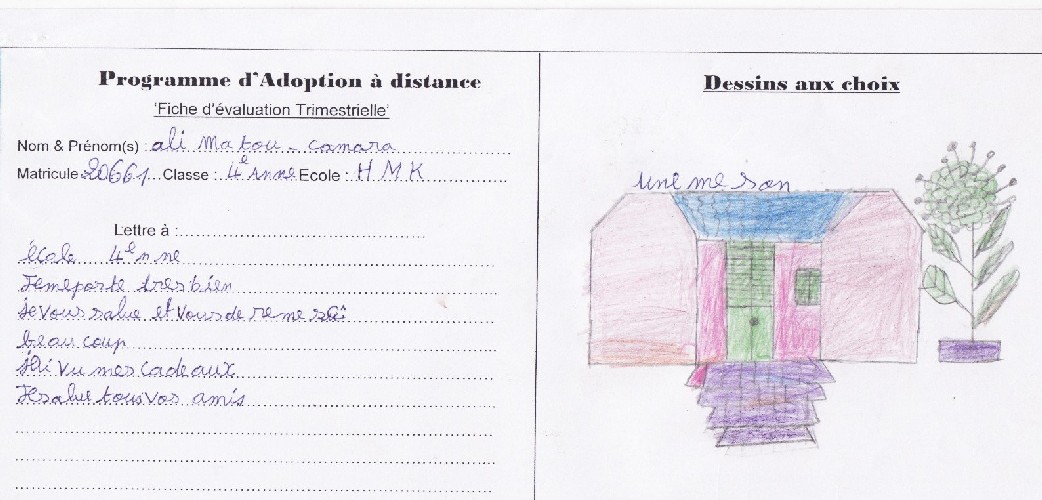 Programme d'Adoption à distance
'Fiche d'évaluation Trimestrielle'
Nom & Prénom(s) : ali Matou - camara
Matricule 20661 Classe : 4e anne Ecole : H M K
Lettre à :
école 4e nne
Jemeporte tresbien
Je vous salue et vous de remersaî
beau coup
J'ai vu mes cadeaux
Jesalue tous vos amis
Dessins aux choix
une me son